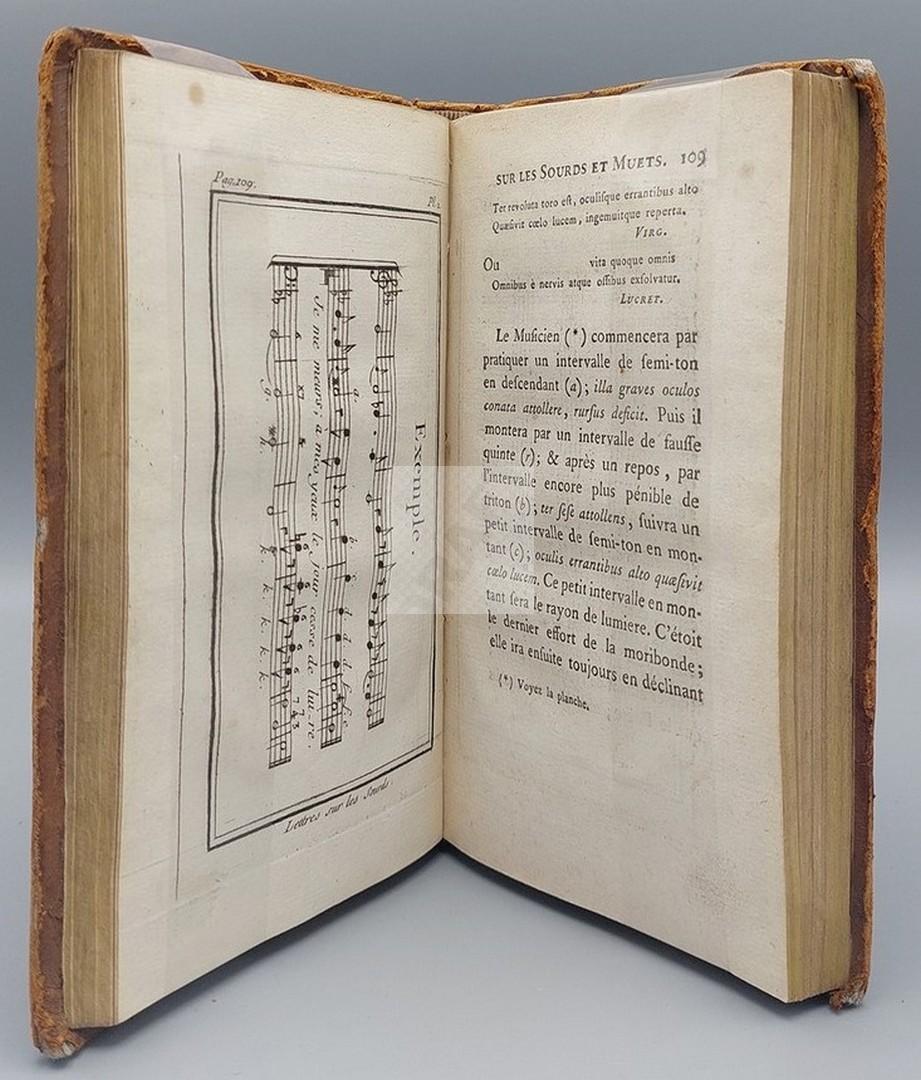 Pag. 109.
Pl. 2
Exemple.
Je me meurs; a mes yeux le jour cesse de lui-re.
Lettres sur les Sourds.
SUR LES SOURDS ET MUETS. 109
Ter revoluta toro eſt, oculiſque errantibus alto
Quæſivit cœlo lucem, ingemuitque reperta.
VIRG.
Ou vita quoque omnis
Omnibus è nervis atque oſſibus exſolvatur.
LUCRET.
Le Muſicien (*) commencera par
pratiquer un intervalle de ſemi-ton
en deſcendant (a); illa graves oculos
conata attollere, rurſus deficit. Puis il
montera par un intervalle de fauſſe
quinte (r); & après un repos, par
l'intervalle encore plus pénible de
triton (b); ter ſeſe attollens, ſuivra un
petit intervalle de ſemi-ton en mon-
tant (c); oculis errantibus alto quæſivit
cœlo lucem. Ce petit intervalle en mon-
tant ſera le rayon de lumiere. C'étoit
le dernier effort de la moribonde;
elle ira enſuite toujours en déclinant
(*) Voyez la planche.